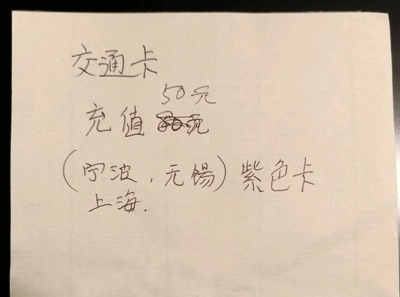 交通卡
50元
充值
(宁波,无锡)紫色卡
上海.